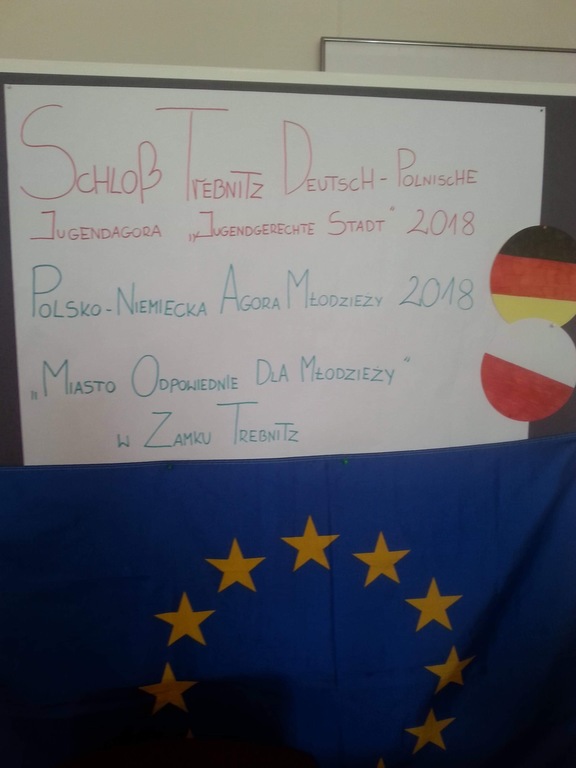 Schloß Trebnitz Deutsch-Polnische
Jugendagora „Jugendgerechte Stadt“ 2018
Polsko-Niemiecka Agora Młodzieży 2018
„Miasto Odpowiednie Dla Młodzieży“
w Zamku Trebnitz